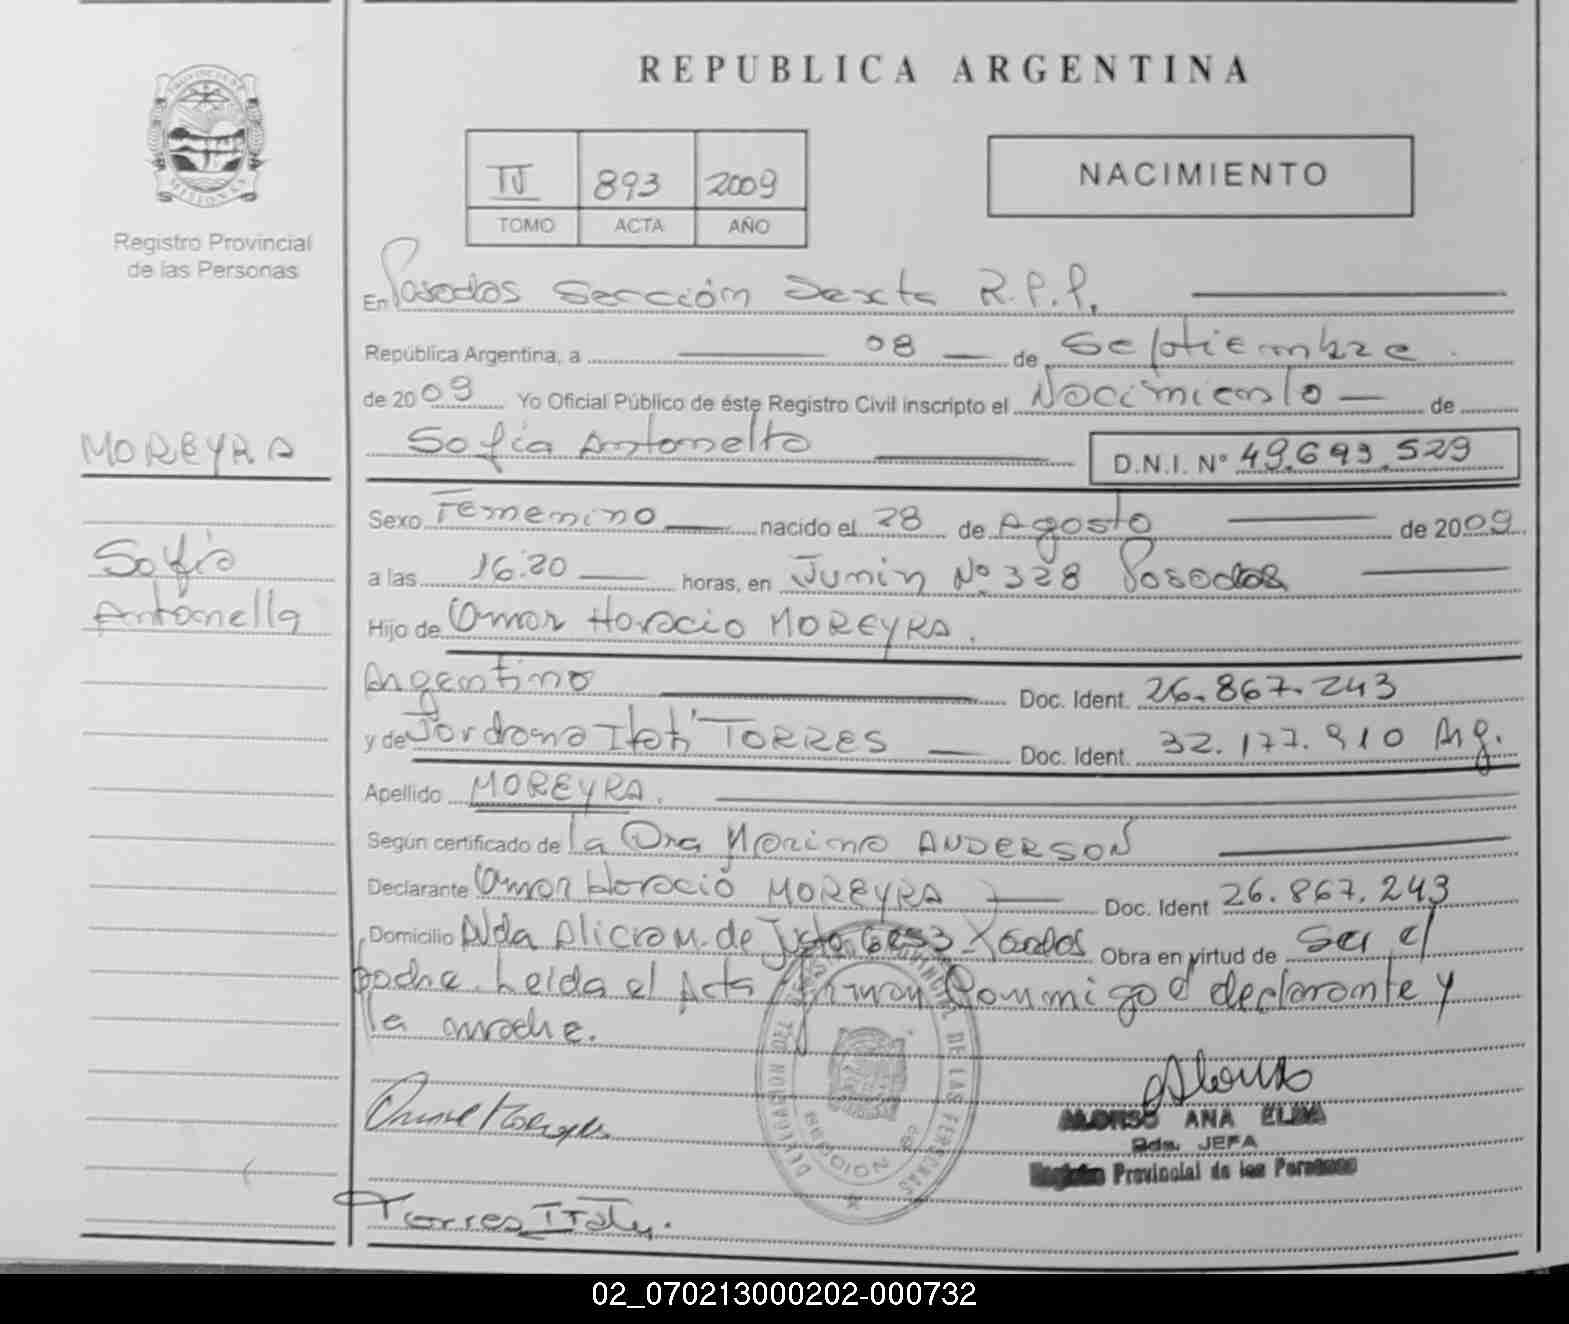 REPUBLICA ARGENTINA
PROVINCIA DE
MISIONES
Registro Provincial
de las Personas
II 893 2009
TOMO ACTA AÑO
NACIMIENTO
En Posadas Sección Sexta R.P.P.
República Argentina, a 08 de Septiembre
de 2009 Yo Oficial Público de éste Registro Civil inscripto el Nacimiento de
Sofía Antonella D.N.I. Nº 49.693.529
MOREYRA
Sofía
Antonella
Sexo Femenino nacido el 28 de Agosto de 2009
a las 16:20 horas, en Junin Nº 328 Posadas
Hijo de Omar Horacio MOREYRA.
Argentino Doc. Ident. 26.867.243
y de Jordana Itatí TORRES Doc. Ident. 32.177.910 Arg.
Apellido MOREYRA.
Según certificado de la Dra Marina ANDERSON
Declarante Omar Horacio MOREYRA Doc. Ident 26.867.243
Domicilio Alda Alicia M. de Justo Obra en virtud de ser el
padre. Leída el Acta firman conmigo el declarante y
la madre.
ALONSO ANA ELBA
JEFA
Registro Provincial de las Personas
DE LAS PERSONAS
DELEGACION
SECCION 6ª
POSADAS
Torres Itaty.
02_070213000202-000732